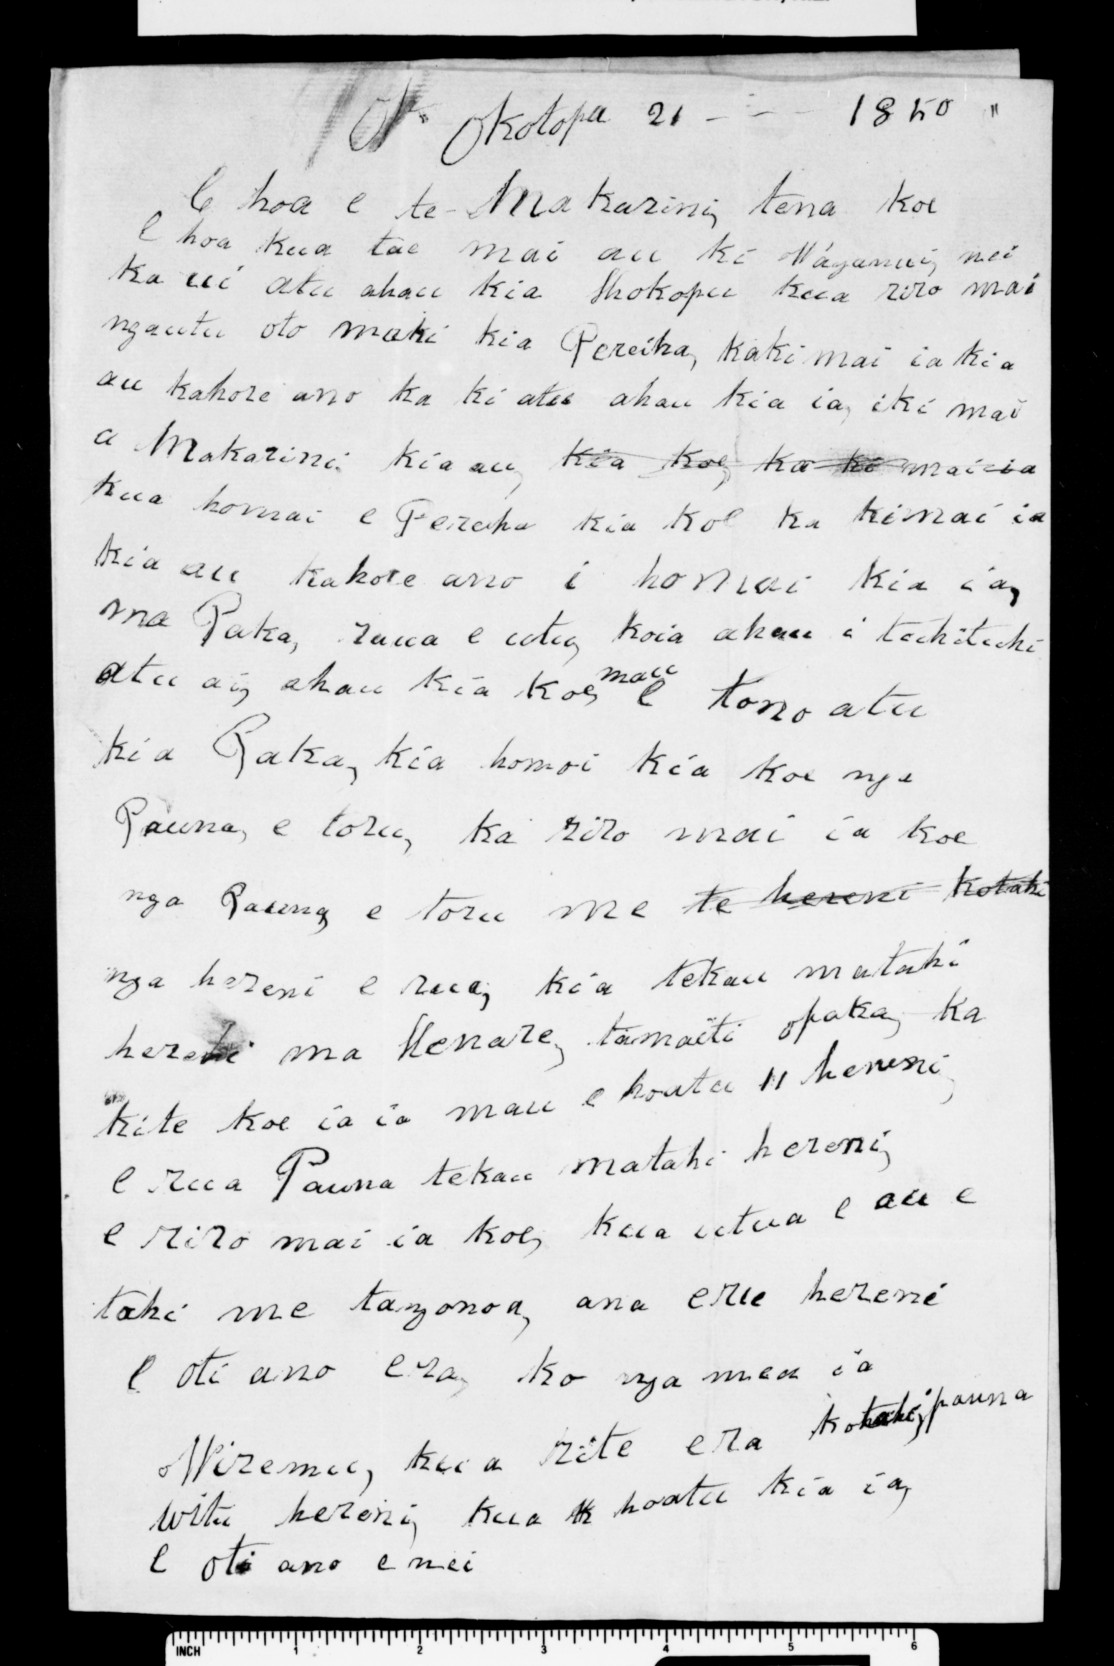 Okotopa 21 - - - 1850 "
E hoa e te Makarini, tena koe
E hoa kua tae mai au ki Wáganui, nei
ka ui atu ahau kia Hhokopu kua riro mai
ngautu oto maki kia Pereiha, kaki mai ia kia
au kahore ano ka ki atu ahau kia ia, iki mai
a Makarini kia au, kia koe, ka ki mai ia
kua homai e Pereiha kia koe ka kimai ia
kia au kahore ano i homai kia ia,
ma Paka, raua e utu, koia ahau i tuhituhi
atu ai, ahau kia koe, mau e tono atu
kia Paka, kia homoi kia koe nga
Pauna, e toru, ka riro mai ia koe
nga Pauna, e toru me te hereni kotahi
nga hereni e rua, kia tekau matahi
hereni ma Henare, tamaiti opaka, ka
kite koe ia ia mau e hoatu 11 hereni,
e rua Pauna tekau matahi hereni,
e riro mai ia koe, kua utua e au e
tahi me tangonoa, ana eru hereni
E oti ano era, ko nga mea ia
Wiremu, kua rite era kotahi, pauna
witu hereni, kua hoatu kia ia,
E oti ano enei
INCH 1 2 3 4 5 6